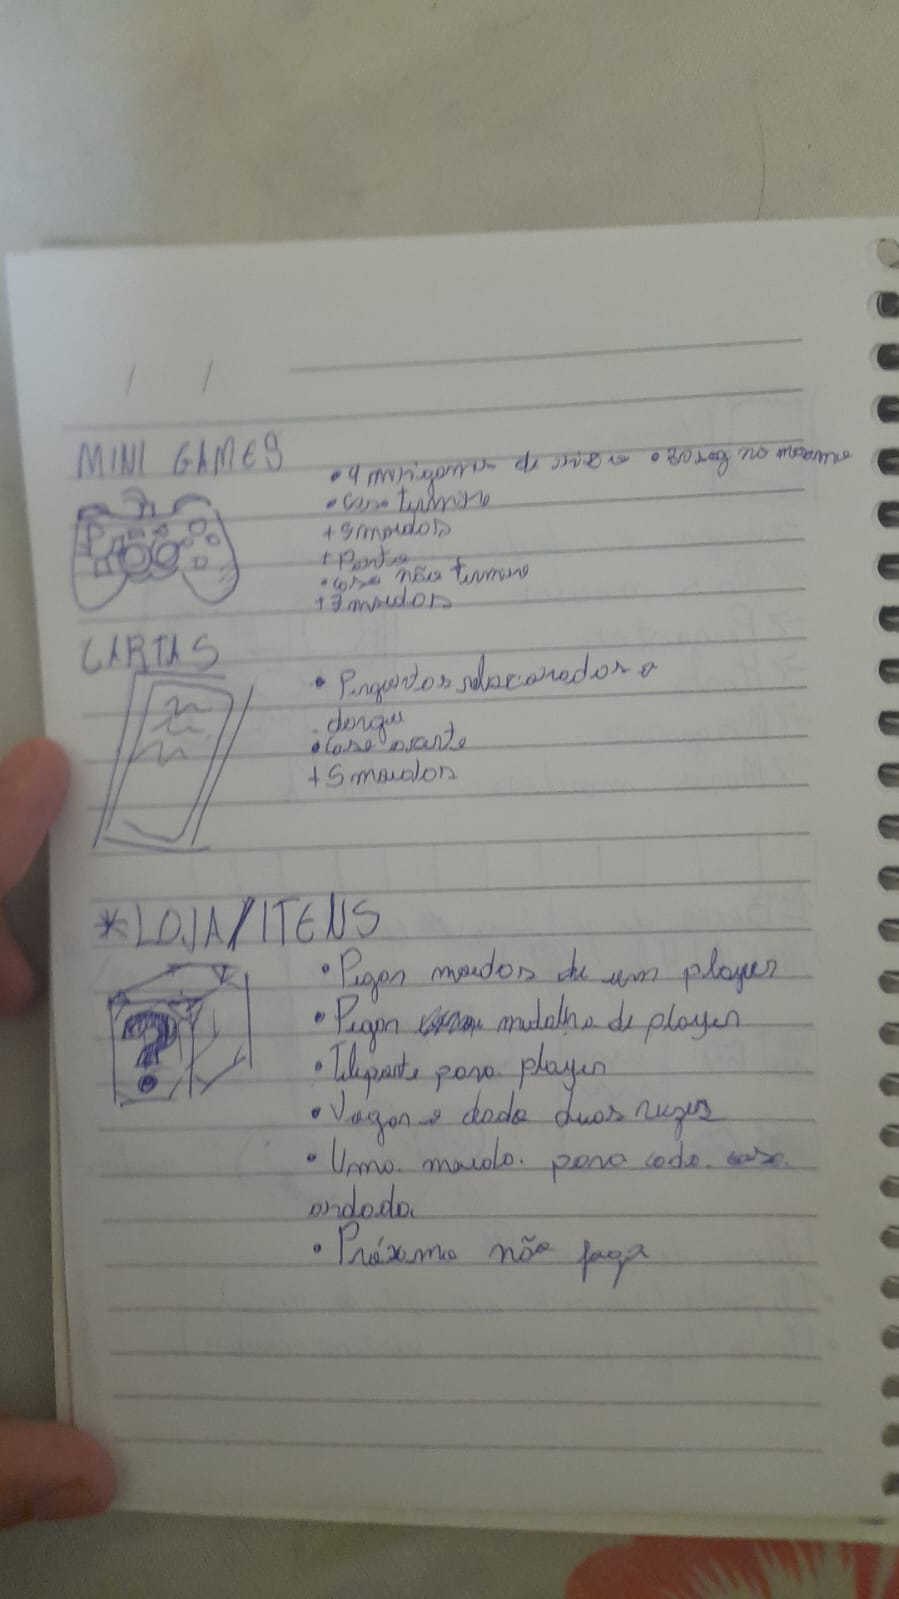 / /
MINI GAMES
• 4 minigames de no máximo
• caso termine
+ 9 moedas
+ Ponto
• caso não termine
+ 3 moedas
CARTAS
• Perguntas relacionadas a
dengue
• Caso acerte
+ 5 moedas
* LOJA/ITENS
?
• Pegar moedas de um player
• Pegar medalha de player
• Teleporte para player
• Jogar o dado duas vezes
• Uma moeda para cada casa
andada
• Próximo não joga